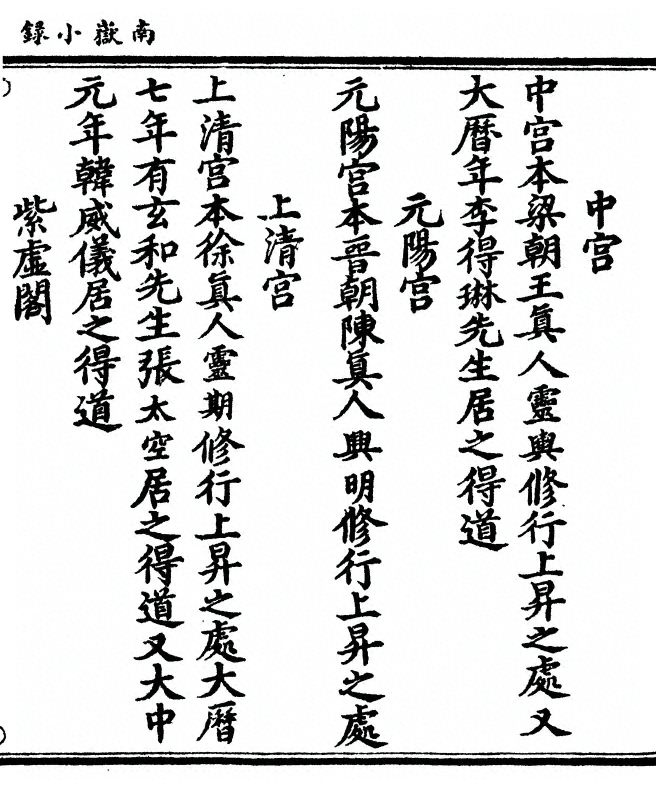 南嶽小録
中宮
中宮本梁朝王眞人靈輿修行上昇之處又
大曆年李得琳先生居之得道
元陽宮
元陽宮本晉朝陳眞人興明修行上昇之處
上清宮
上清宮本徐眞人靈期修行上昇之處大曆
七年有玄和先生張太空居之得道又大中
元年韓威儀居之得道
紫虛閣